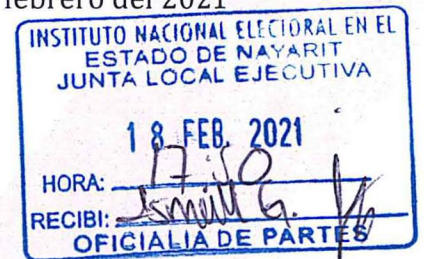 febrero del 2021
INSTITUTO NACIONAL ELECTORAL EN EL
ESTADO DE NAYARIT
JUNTA LOCAL EJECUTIVA
18 FEB. 2021
HORA: 17:50
RECIBI: Ismeill G.
OFICIALIA DE PARTES